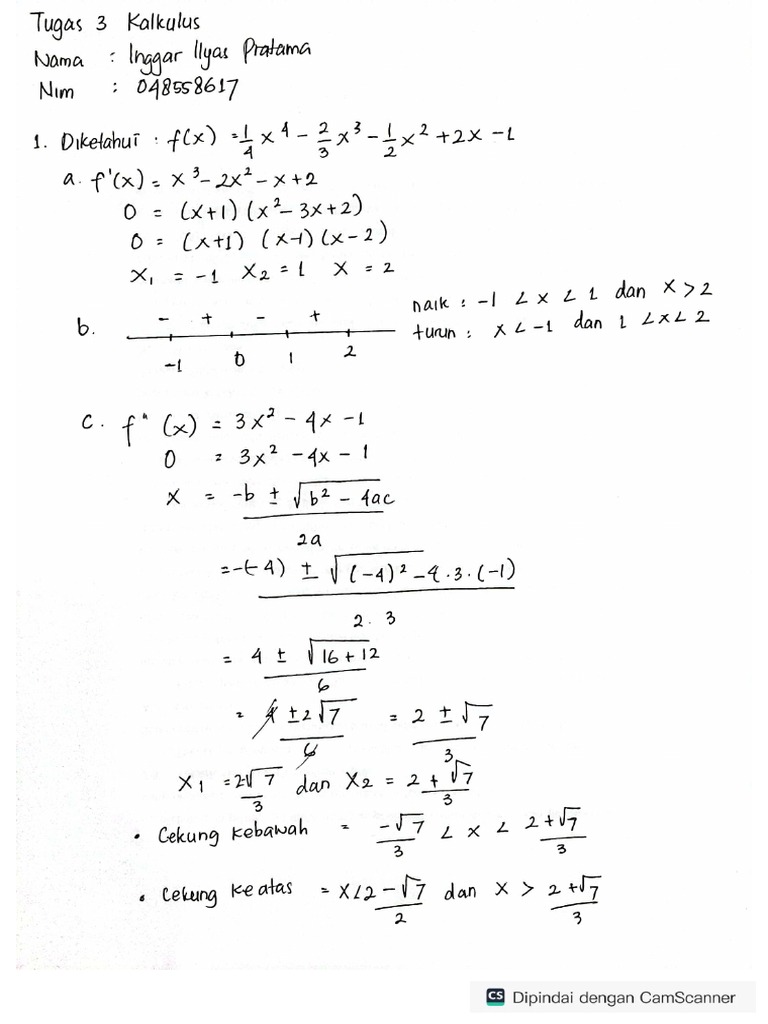 Tugas 3 Kalkulus
Nama : Inggar Ilyas Pratama
Nim : 048558617
1. Diketahui : f(x) = 1/4 x^4 - 2/3 x^3 - 1/2 x^2 + 2x - 1
a. f'(x) = x^3 - 2x^2 - x + 2
0 = (x+1) (x^2 - 3x + 2)
0 = (x+1) (x-1) (x-2)
x₁ = -1 x₂ = 1 x = 2
b. - + - +
-1 0 1 2
naik : -1 < x < 1 dan x > 2
turun : x < -1 dan 1 < x < 2
c. f"(x) = 3x^2 - 4x - 1
0 = 3x^2 - 4x - 1
x = (-b ± √(b^2 - 4ac))/2a
= (-(-4) ± √((-4)^2 - 4.3.(-1)))/(2.3)
= (4 ± √(16+12))/6
= (4 ± 2√7)/6 = (2 ± √7)/3
x₁ = 2-√7/3 dan x₂ = (2+√7)/3
• Cekung kebawah = -√7/3 < x < (2+√7)/3
• Cekung keatas = x < (2-√7)/2 dan x > (2+√7)/3
CS Dipindai dengan CamScanner